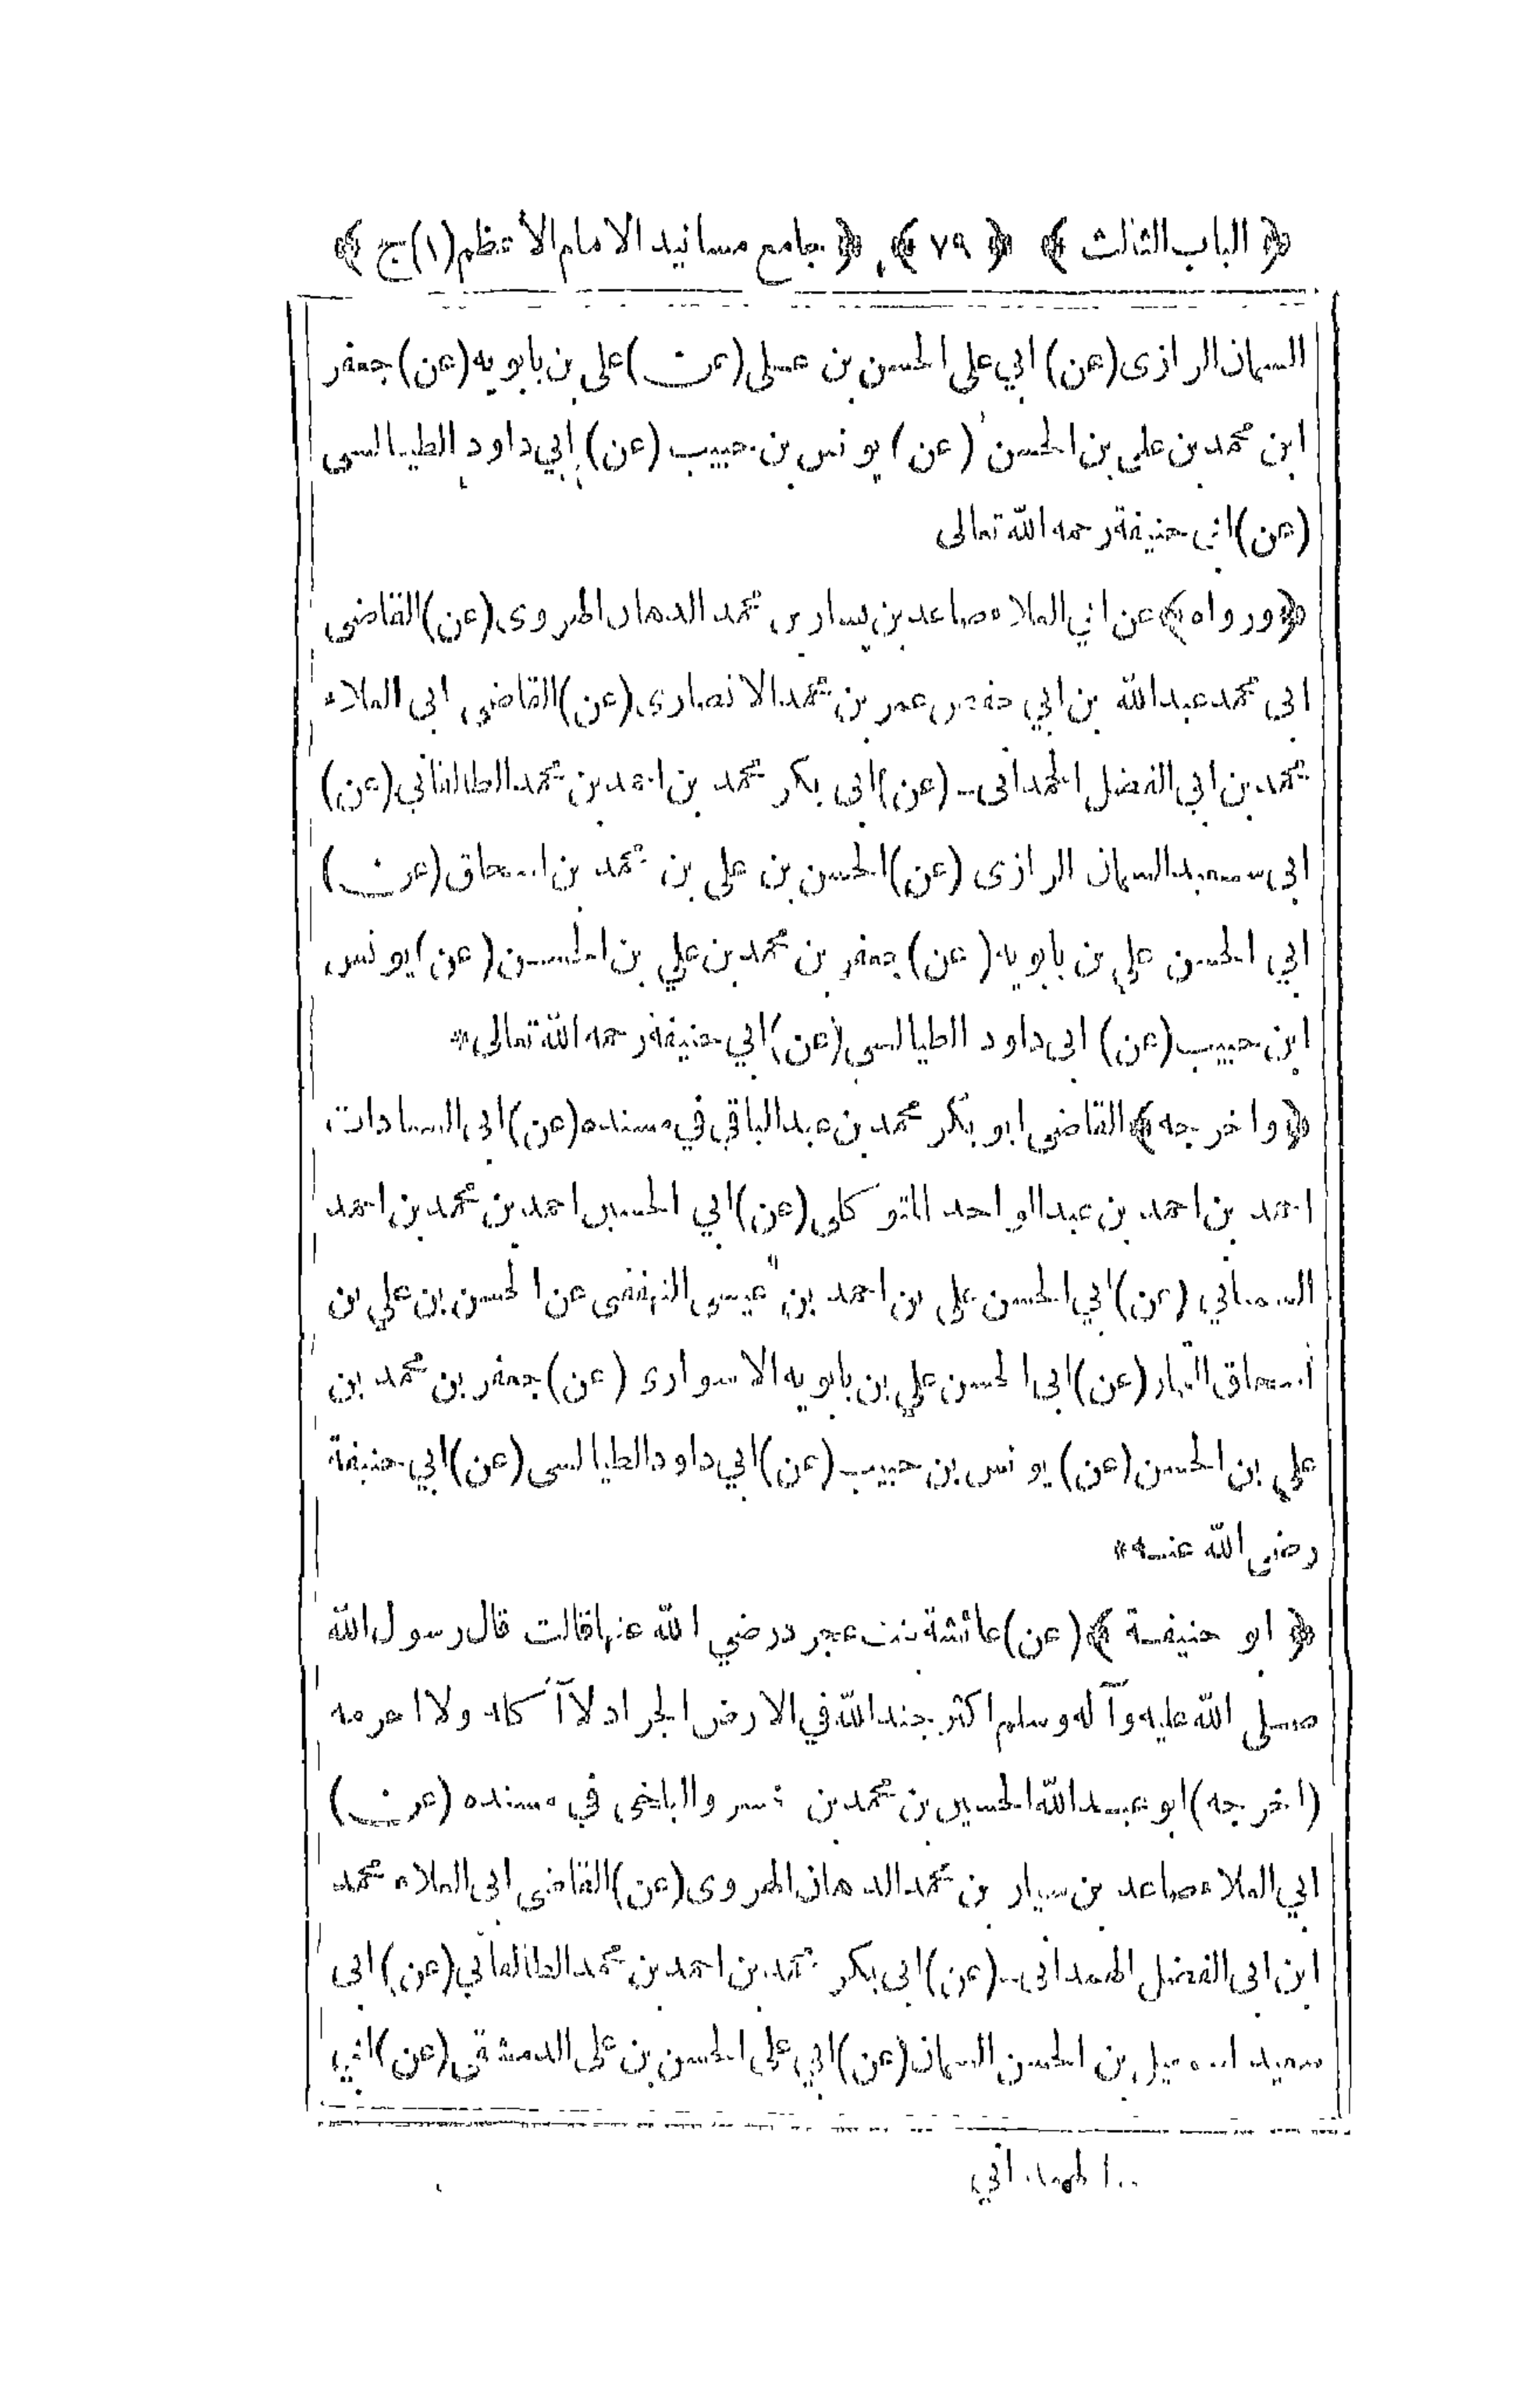 ﴿ الباب الثالث ﴾ ﴿ ٧٩ ﴾ ﴿ جامع مسانيد الامام الأعظم (١) ج ﴾
السمان الرازى (عن) ابي على الحسن بن عــلى (عن) على بن بابويه (عن) جعفر
ابن محمد بن علي بن الحسن (عن) يونس بن حبيب (عن) ابي داود الطيالسى
(عن) ابي حنيفة رحمه الله تعالى
﴿ ورواه ﴾ عن ابي العلاء صاعد بن يسار بن محمد الدهان الهروى (عن) القاضى
ابى محمد عبد الله بن ابي حفص عمر بن محمد الانصارى (عن) القاضى ابى العلاء
محمد بن ابي الفضل الحمدانى (عن) ابى بكر محمد بن احمد بن محمد الطالقاني (عن)
ابى سعيد السمان الرازى (عن) الحسن بن على بن محمد بن اسحاق (عن)
ابي الحسن علي بن بابويه (عن) جعفر بن محمد بن علي بن الحسن (عن) يونس
ابن حبيب (عن) ابى داود الطيالسى (عن) ابي حنيفة رحمه الله تعالى *
﴿ واخرجه ﴾ القاضى ابو بكر محمد بن عبد الباقي في مسنده (عن) ابى السعادات
احمد بن احمد بن عبد الواحد المتوكلى (عن) ابي الحسين احمد بن محمد بن احمد
السمناني (عن) ابي الحسن على بن احمد بن عيسى النهفقى عن الحسن بن علي بن
اسحاق التمار (عن) ابى الحسن علي بن بابويه الاسوارى (عن) جعفر بن محمد بن
علي بن الحسن (عن) يونس بن حبيب (عن) ابي داود الطيالسى (عن) ابي حنيفة
رضى الله عنــه *
﴿ ابو حنيفــة ﴾ (عن) عائشة بنت عجرد رضي الله عنها قالت قال رسول الله
صــلى الله عليه وآله وسلم اكثر جند الله في الارض الجراد لا آكله ولا احرمه
(اخرجه) ابو عبــد الله الحسين بن محمد بن خسرو البلخى في مسنده (عن)
ابي العلاء صاعد بن سيار بن محمد الدهان الهروى (عن) القاضى ابى العلاء محمد
ابن ابى الفضل الهمدانى (عن) ابى بكر محمد بن احمد بن محمد الطالقاني (عن) ابى
سعيد اسمعيل بن الحسن السمان (عن) ابي على الحسن بن على الدمشقى (عن) ابي
الهمداني